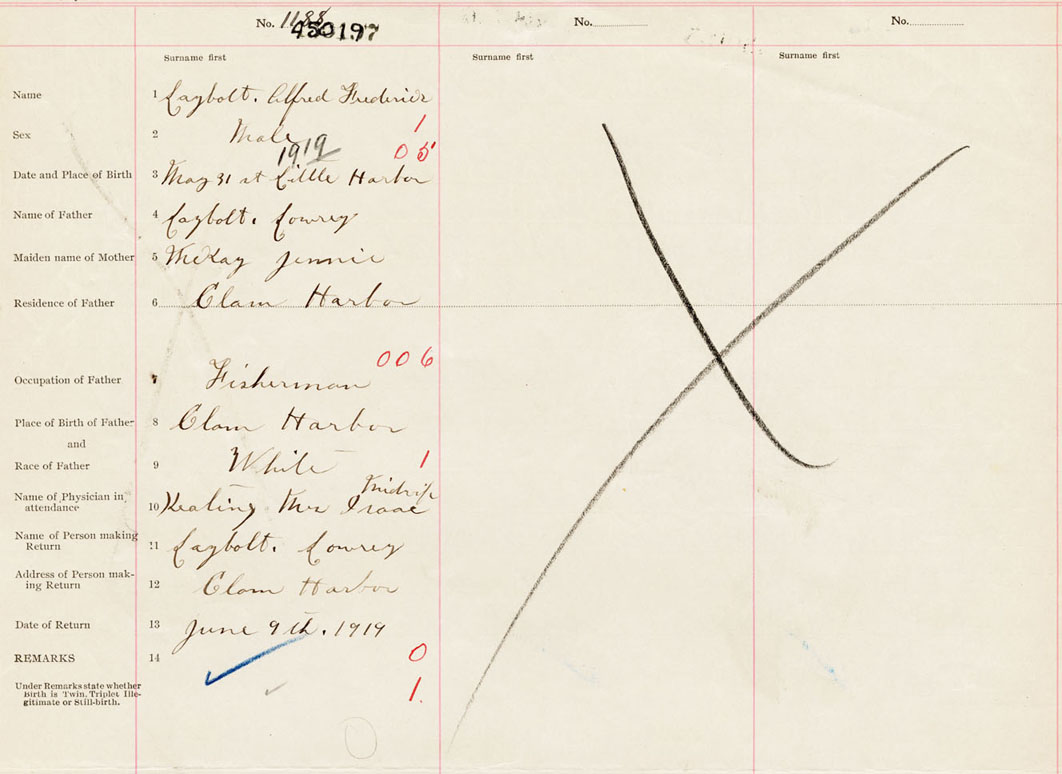 No. 1188 No. No.
450197
Surname first Surname first Surname first
Name 1 Laybolt. Alfred Frederick
Sex 2 Male 1
1919 05
Date and Place of Birth 3 May 31 st Little Harbor
Name of Father 4 Laybolt. Lowrey
Maiden name of Mother 5 McKay Jennie
Residence of Father 6 Clam Harbor
006
Occupation of Father 7 Fisherman
Place of Birth of Father 8 Clam Harbor
and
Race of Father 9 White 1
Name of Physician in Midwife
attendance 10 Keating Mrs Isaac
Name of Person making
Return 11 Laybolt. Lowrey
Address of Person mak-
ing Return 12 Clam Harbor
Date of Return 13 June 9th. 1919
REMARKS 14 0
Under Remarks state whether 1.
Birth is Twin, Triplet Ille-
gitimate or Still-birth.